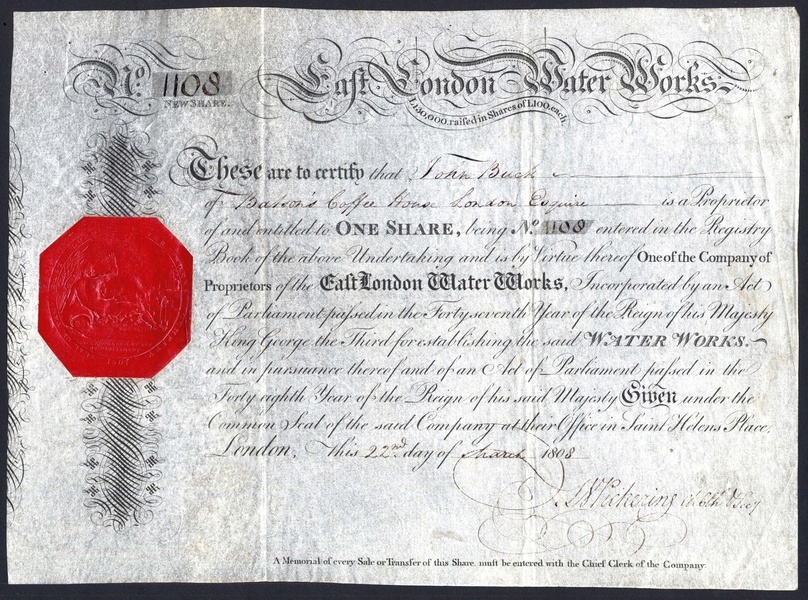 No. 1108
NEW SHARE.
East London Water Works
£130,000, raised in Shares of £100, each.
These are to certify that John Buck
of Batson's Coffee House London Esquire is a Proprietor
of and entitled to ONE SHARE, being No. 1108 entered in the Registry
Book of the above Undertaking and is by Virtue thereof One of the Company of
Proprietors of the East London Water Works, Incorporated by an Act
of Parliament passed in the Forty seventh Year of the Reign of his Majesty
King George the Third for establishing the said WATER WORKS.
and in pursuance thereof and of an Act of Parliament passed in the
Forty eighth Year of the Reign of his said Majesty Given under the
Common Seal of the said Company at their Office in Saint Helens Place,
London, This 22nd day of March 1808
Pickering
A Memorial of every Sale or Transfer of this Share, must be entered with the Chief Clerk of the Company.